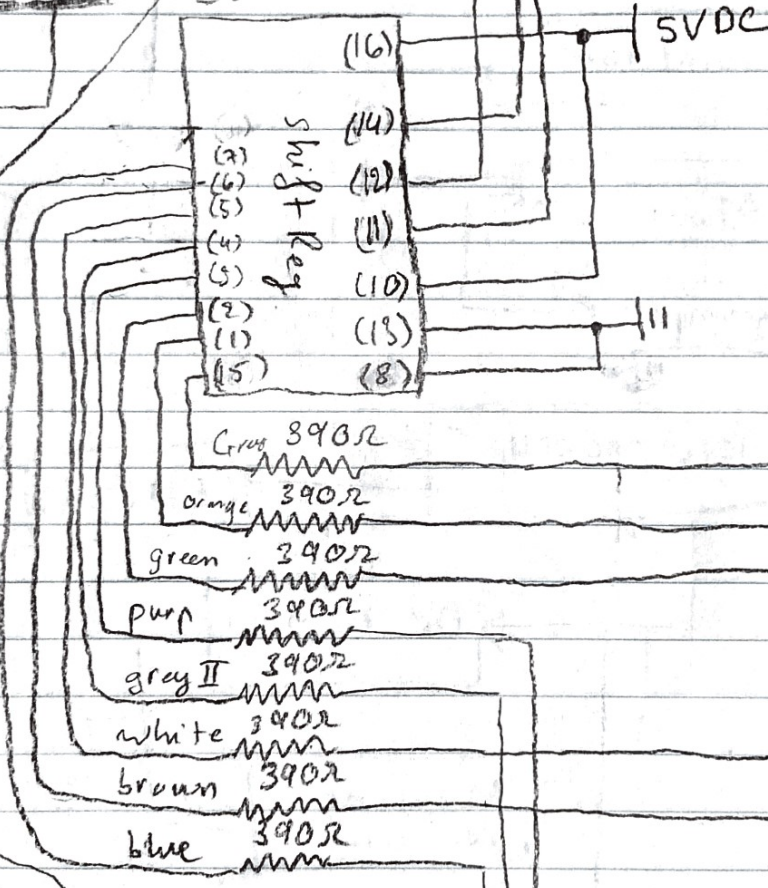 5VDC
(16)
(14)
(7)
(6)
(12)
(5)
Shift Reg
(11)
(4)
(3)
(10)
(2)
(13)
(1)
(15)
(8)
Gray 390Ω
orange 390Ω
green 390Ω
purp 390Ω
gray II 390Ω
white 390Ω
brown 390Ω
blue 390Ω